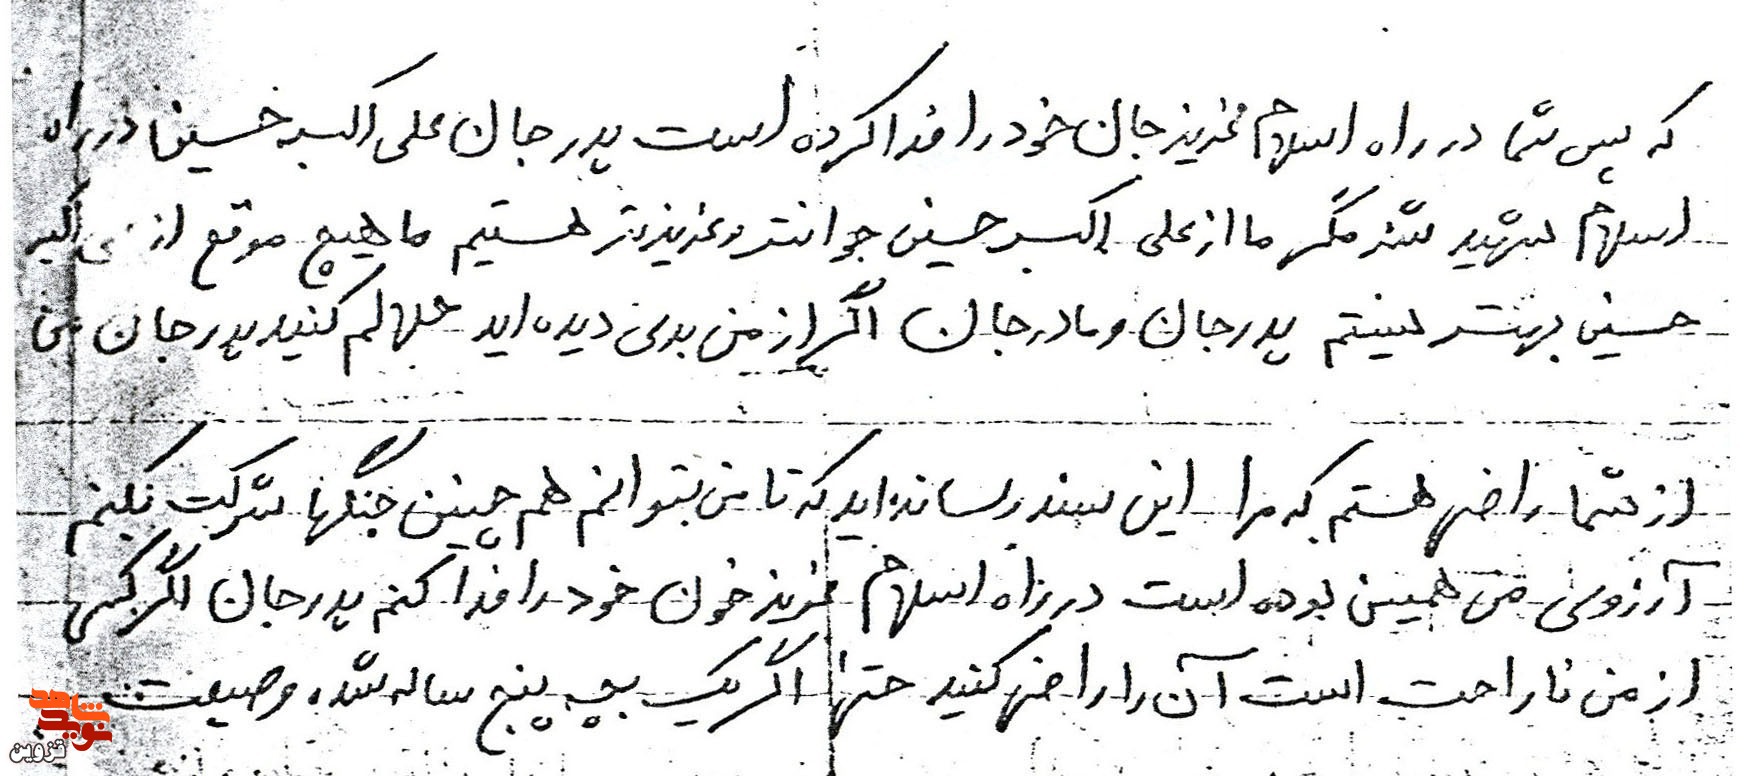 که پس شما در راه اسلام عزیز جان خود را فدا کرده است پدر جان علی اکبر حسین در راه
اسلام شهید شد مگر ما از علی اکبر حسین جوانتر و عزیزتر هستیم ما هیچ موقع از اکبر
حسین بهتر نیستم پدر جان و مادر جان اگر از من بدی دیده اید حلالم کنید پدر جان من
از شما راضی هستم که مرا این سند رسانده اید که تا من بتوانم هم چینن جنگها شرکت بکنم
آرزوی من همین بوده است در راه اسلام عزیز خون خود را فدا کنم پدر جان اگر کسی
از من ناراحت است آن را راضی کنید حتی اگر یک بچه پنج ساله شده وصیت
نوید شاهد
قزوین